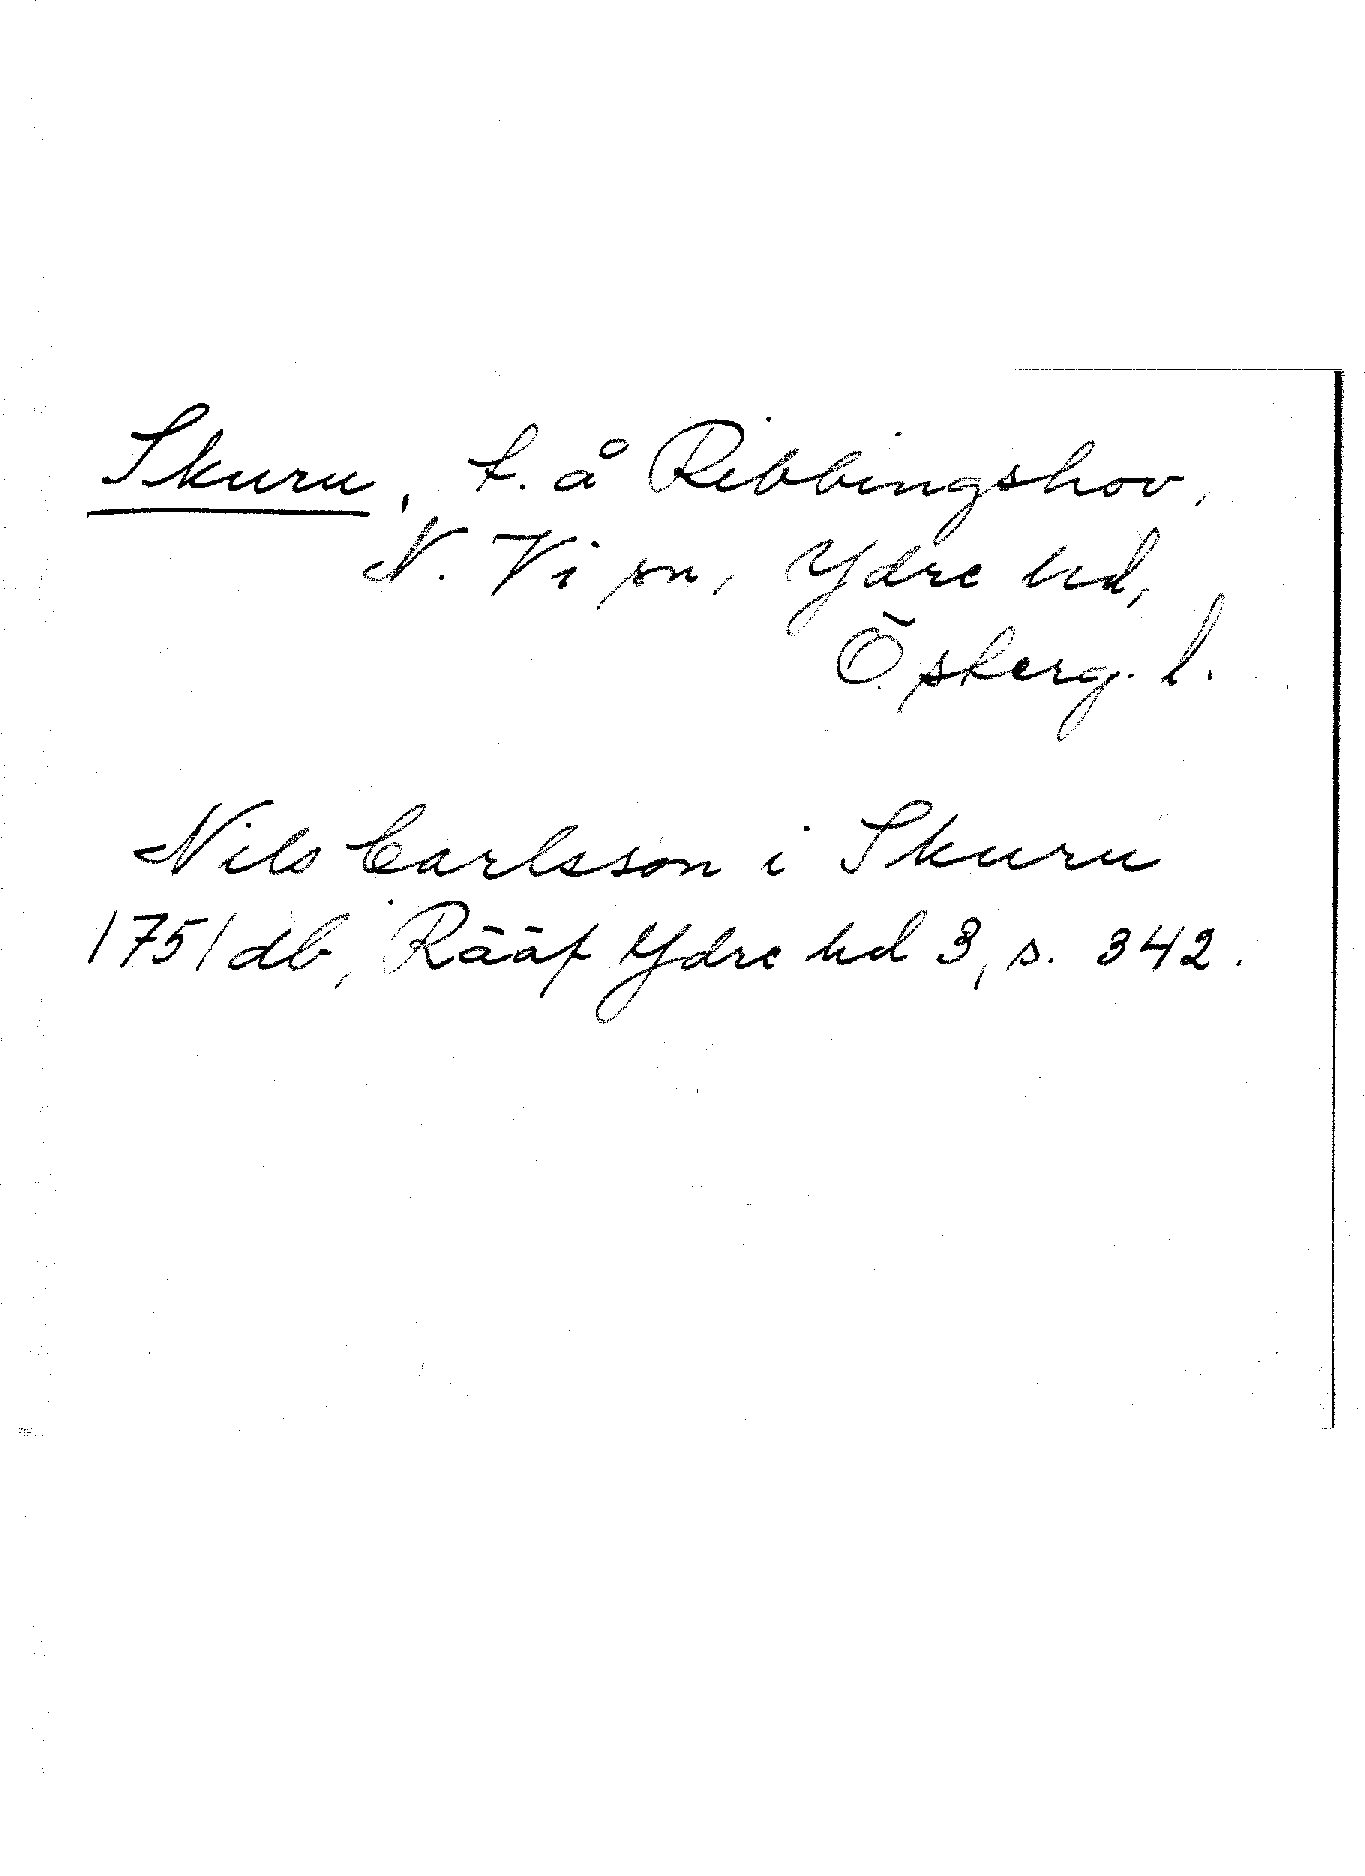 Skuru, t. å Ribbingshov,
N. Vi sn, Ydre hd,
Ö.sterg. l.
Nils Carlsson i Skuru
1751 db, Rääf Ydre hd 3, s. 342.